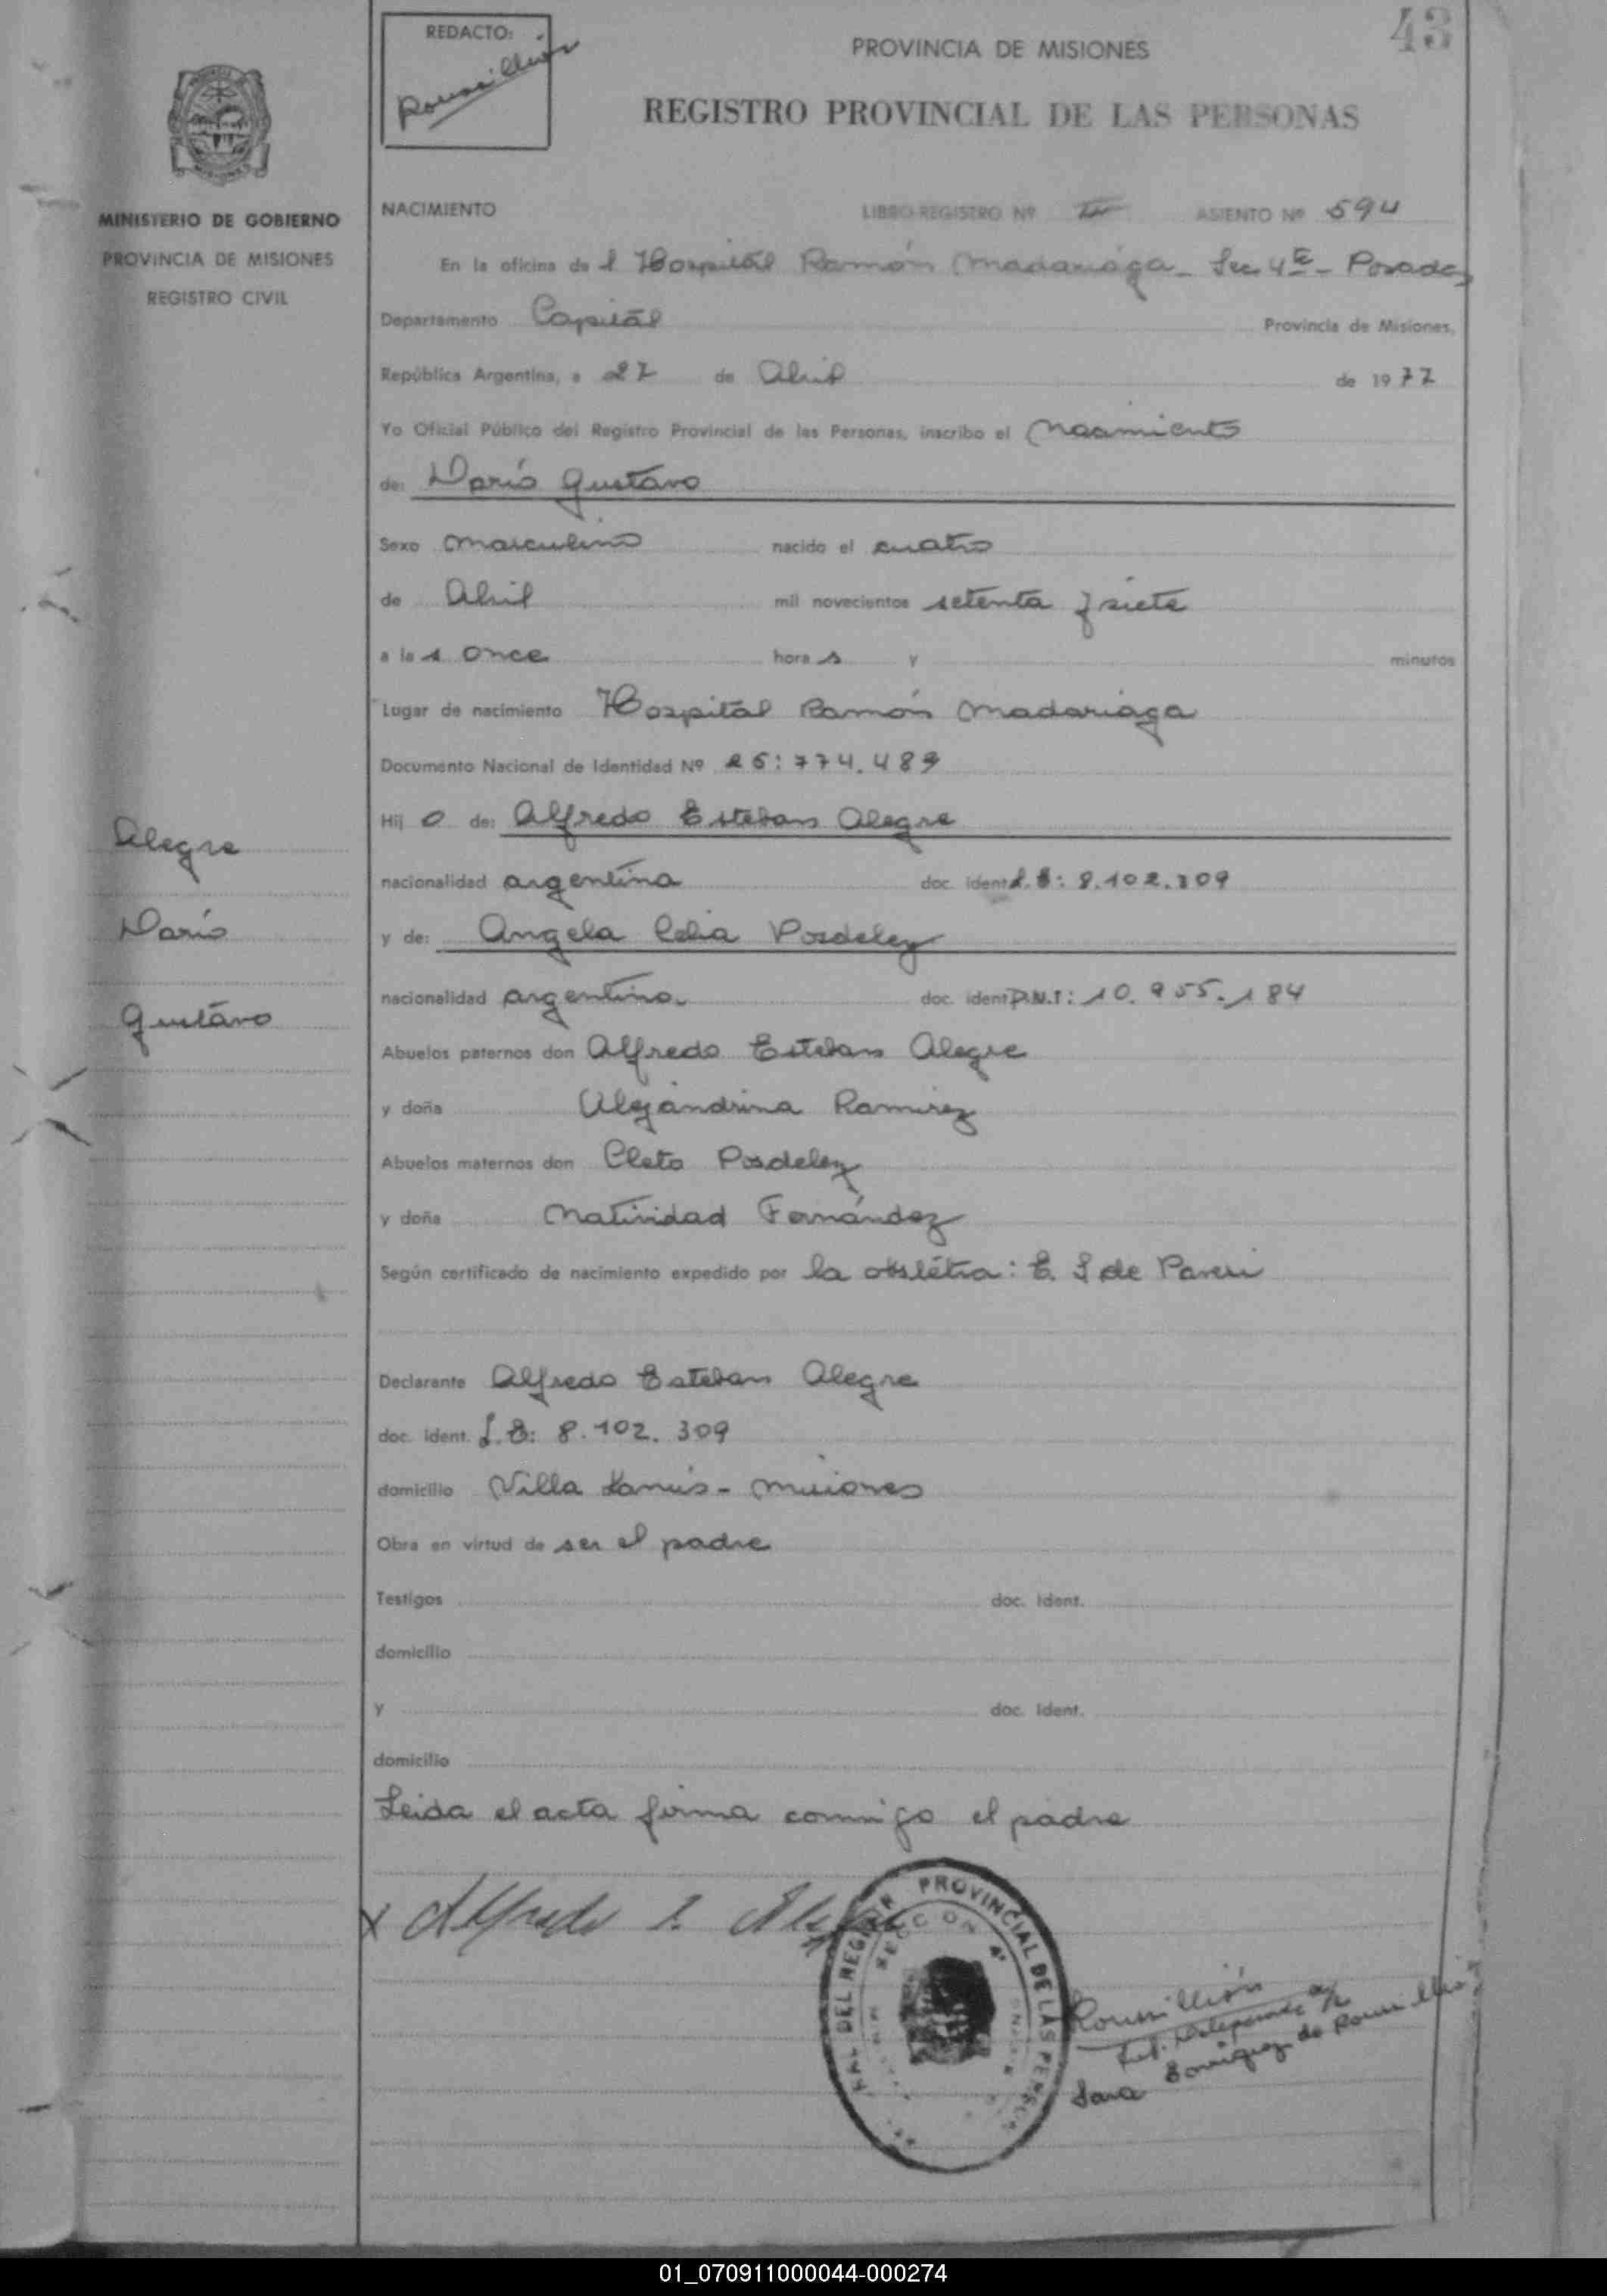 43
REDACTO:
Roussillión
PROVINCIA DE MISIONES
REGISTRO PROVINCIAL DE LAS PERSONAS
MINISTERIO DE GOBIERNO
PROVINCIA DE MISIONES
REGISTRO CIVIL
NACIMIENTO LIBRO-REGISTRO Nº II ASIENTO Nº 594
En la oficina de l Hospital Ramón Madariaga - Sec 4ª - Posadas
Departamento Capital Provincia de Misiones,
República Argentina, a 27 de Abril de 1977
Yo Oficial Público del Registro Provincial de las Personas, inscribo el Nacimiento
de: Darío Gustavo
Sexo masculino nacido el cuatro
de Abril mil novecientos setenta y siete
a las once horas y minutos
Lugar de nacimiento Hospital Ramón Madariaga
Documento Nacional de Identidad Nº 25:774.489
Hijo de: Alfredo Esteban Alegre
nacionalidad argentina doc. ident. L.E: 8.102.309
y de: Angela Celia Posdeley
nacionalidad argentina doc. ident. D.N.I: 10.955.184
Abuelos paternos don Alfredo Esteban Alegre
y doña Alejandrina Ramirez
Abuelos maternos don Cleto Posdeley
y doña Natividad Fernández
Según certificado de nacimiento expedido por la obstétra: E. S de
Declarante Alfredo Esteban Alegre
doc. ident. L.E: 8.102.309
domicilio Villa Lanús - Misiones
Obra en virtud de ser el padre
Testigos doc. ident.
domicilio
y doc. ident.
domicilio
Leida el acta firma conmigo el padre
Alegre
Darío
Gustavo
x Alfredo E. Alegre
DEL REGISTR PROVINCIAL DE LAS PERSO
SECCION 4ª
Roussillión
Sara de Roussillión
01_070911000044-000274